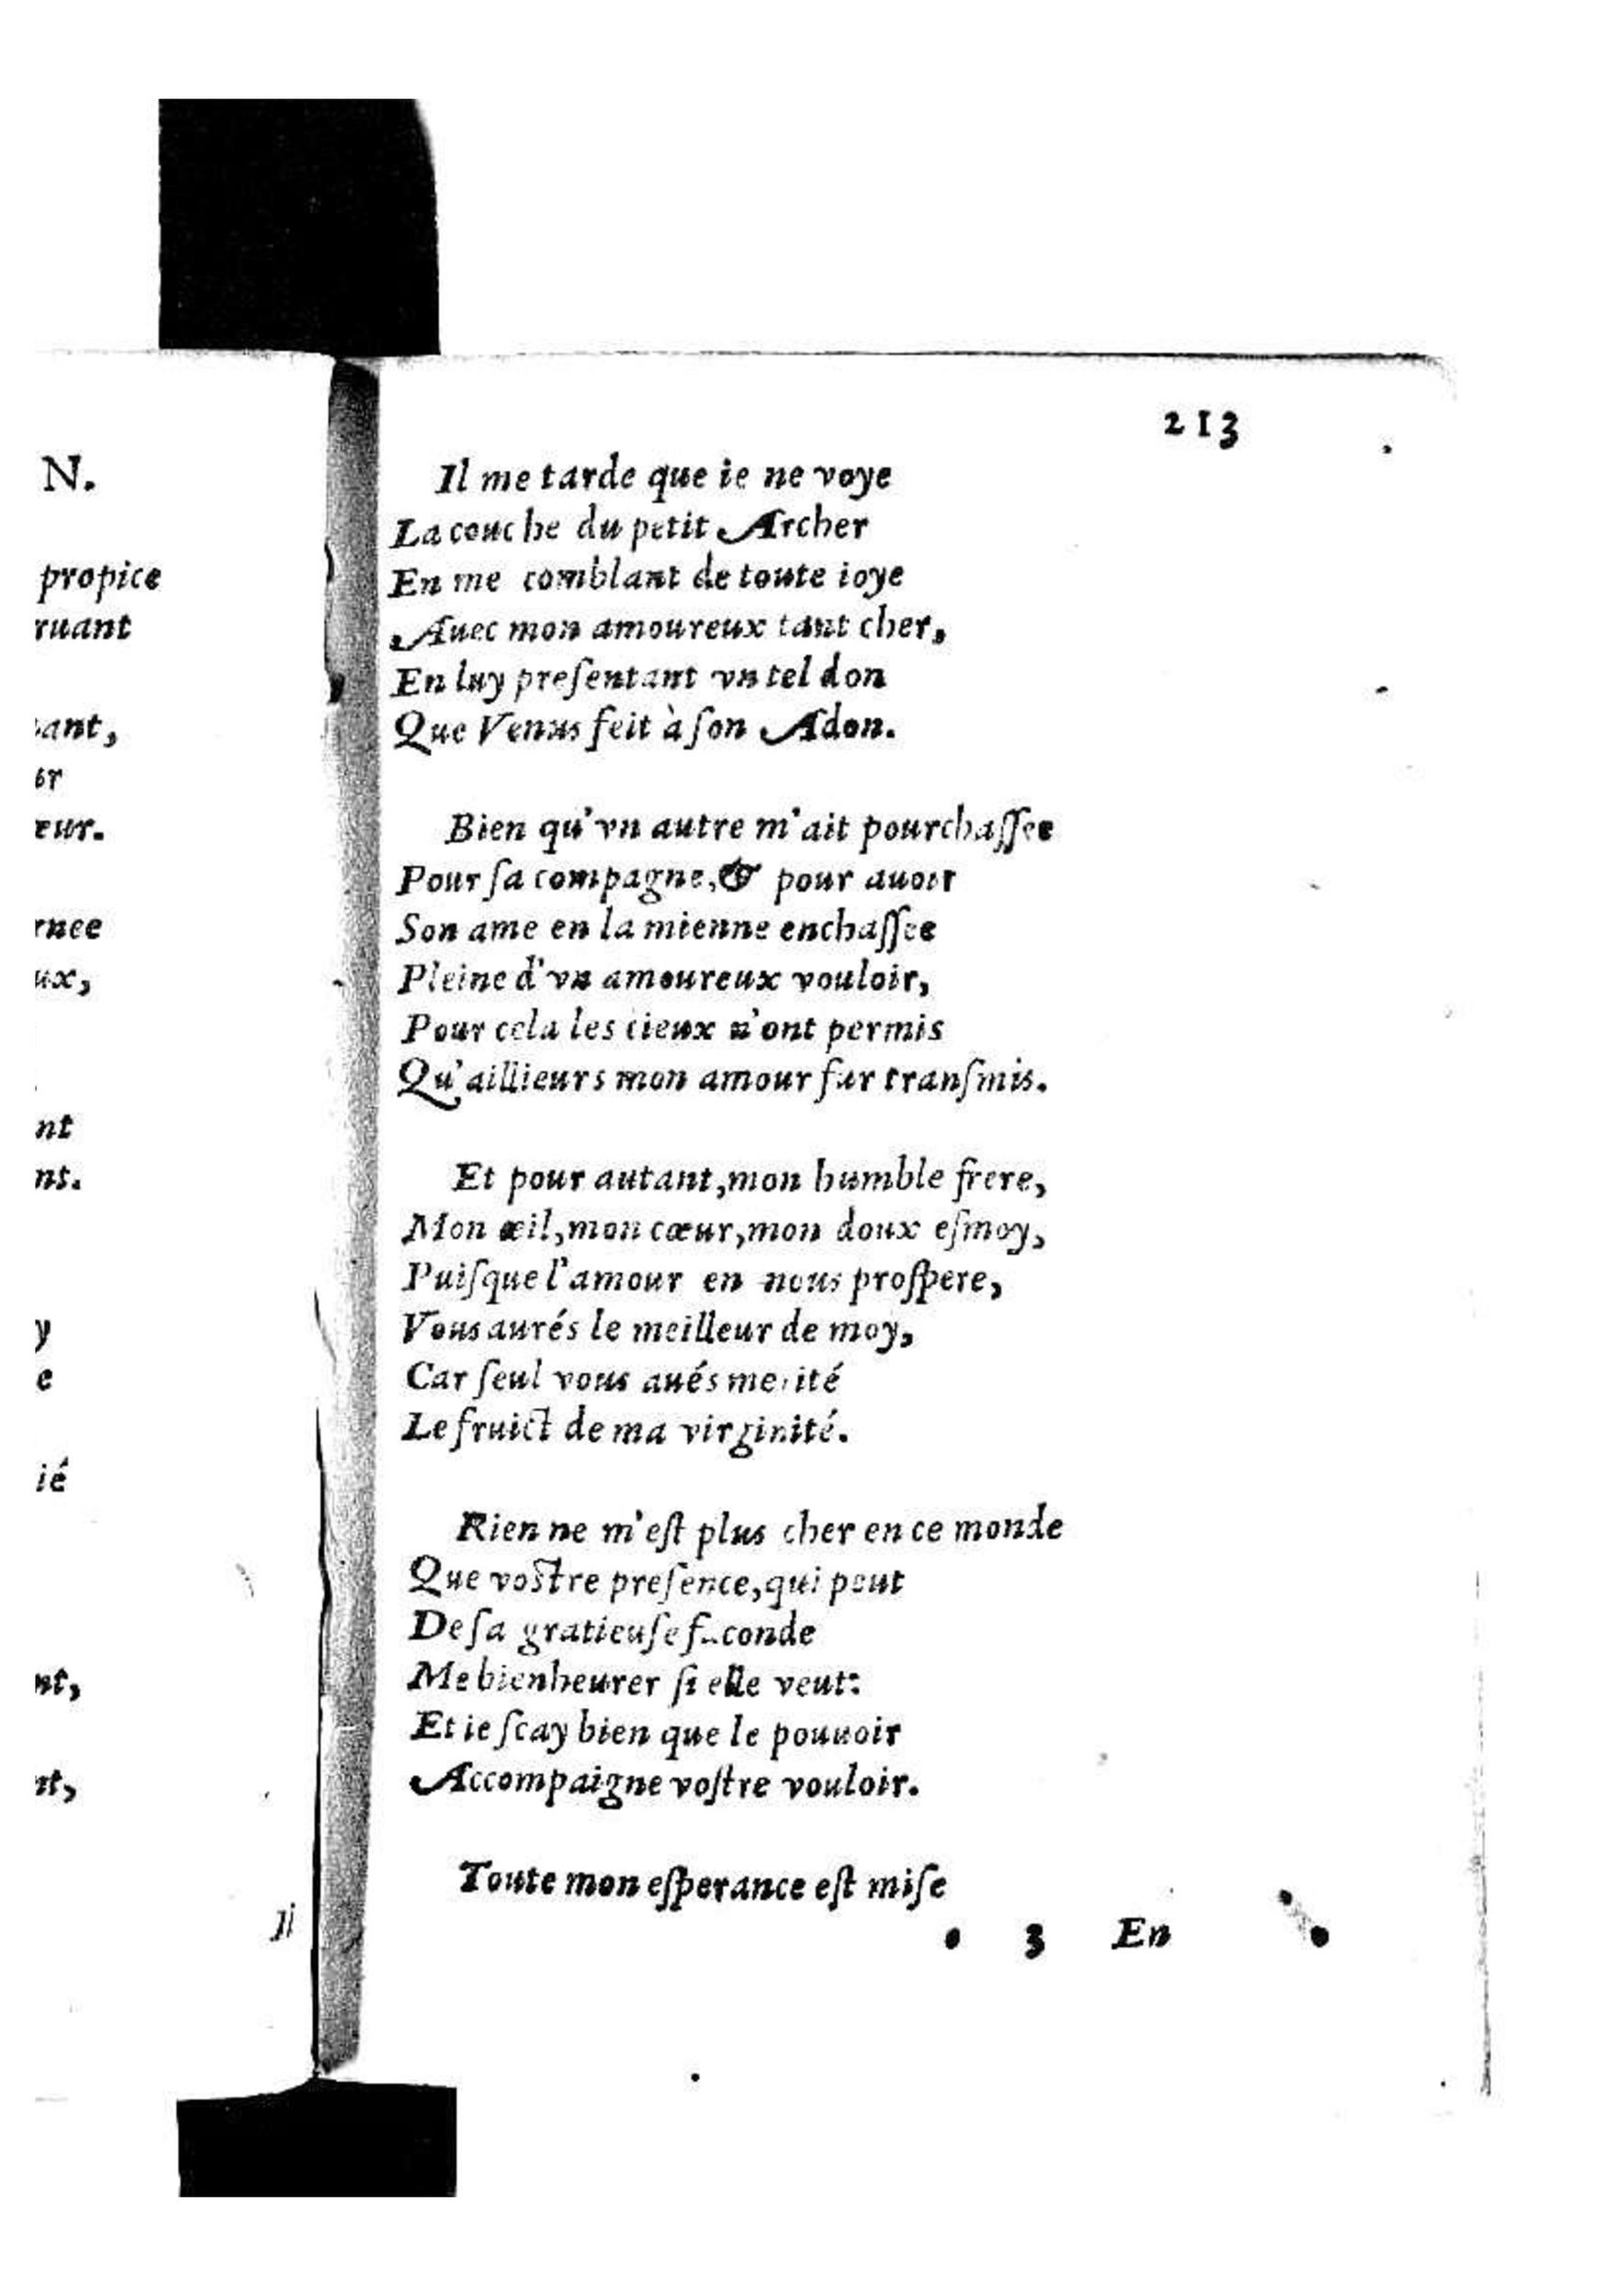 N.
propice
ruant
ant,
œur.
rnee
ux,
nt
ns.
y
e
ié
nt,
nt,
213
Il me tarde que ie ne voye
La couche du petit Archer
En me comblant de toute ioye
Auec mon amoureux tant cher,
En luy preſentant vn tel don
Que Venus feit à ſon Adon.
Bien qu'vn autre m'ait pourchaſſee
Pour ſa compagne, & pour auoir
Son ame en la mienne enchaſſee
Pleine d'vn amoureux vouloir,
Pour cela les cieux n'ont permis
Qu'aillieurs mon amour fur tranſmis.
Et pour autant, mon humble frere,
Mon œil, mon cœur, mon doux eſmoy,
Puiſque l'amour en nous proſpere,
Vous aurés le meilleur de moy,
Car ſeul vous aués merité
Le fruict de ma virginité.
Rien ne m'eſt plus cher en ce monde
Que voſtre preſence, qui peut
De ſa gratieuſe faconde
Me bienheurer ſi elle veut:
Et ie ſcay bien que le pouuoir
Accompaigne voſtre vouloir.
Toute mon eſperance eſt miſe
3 En